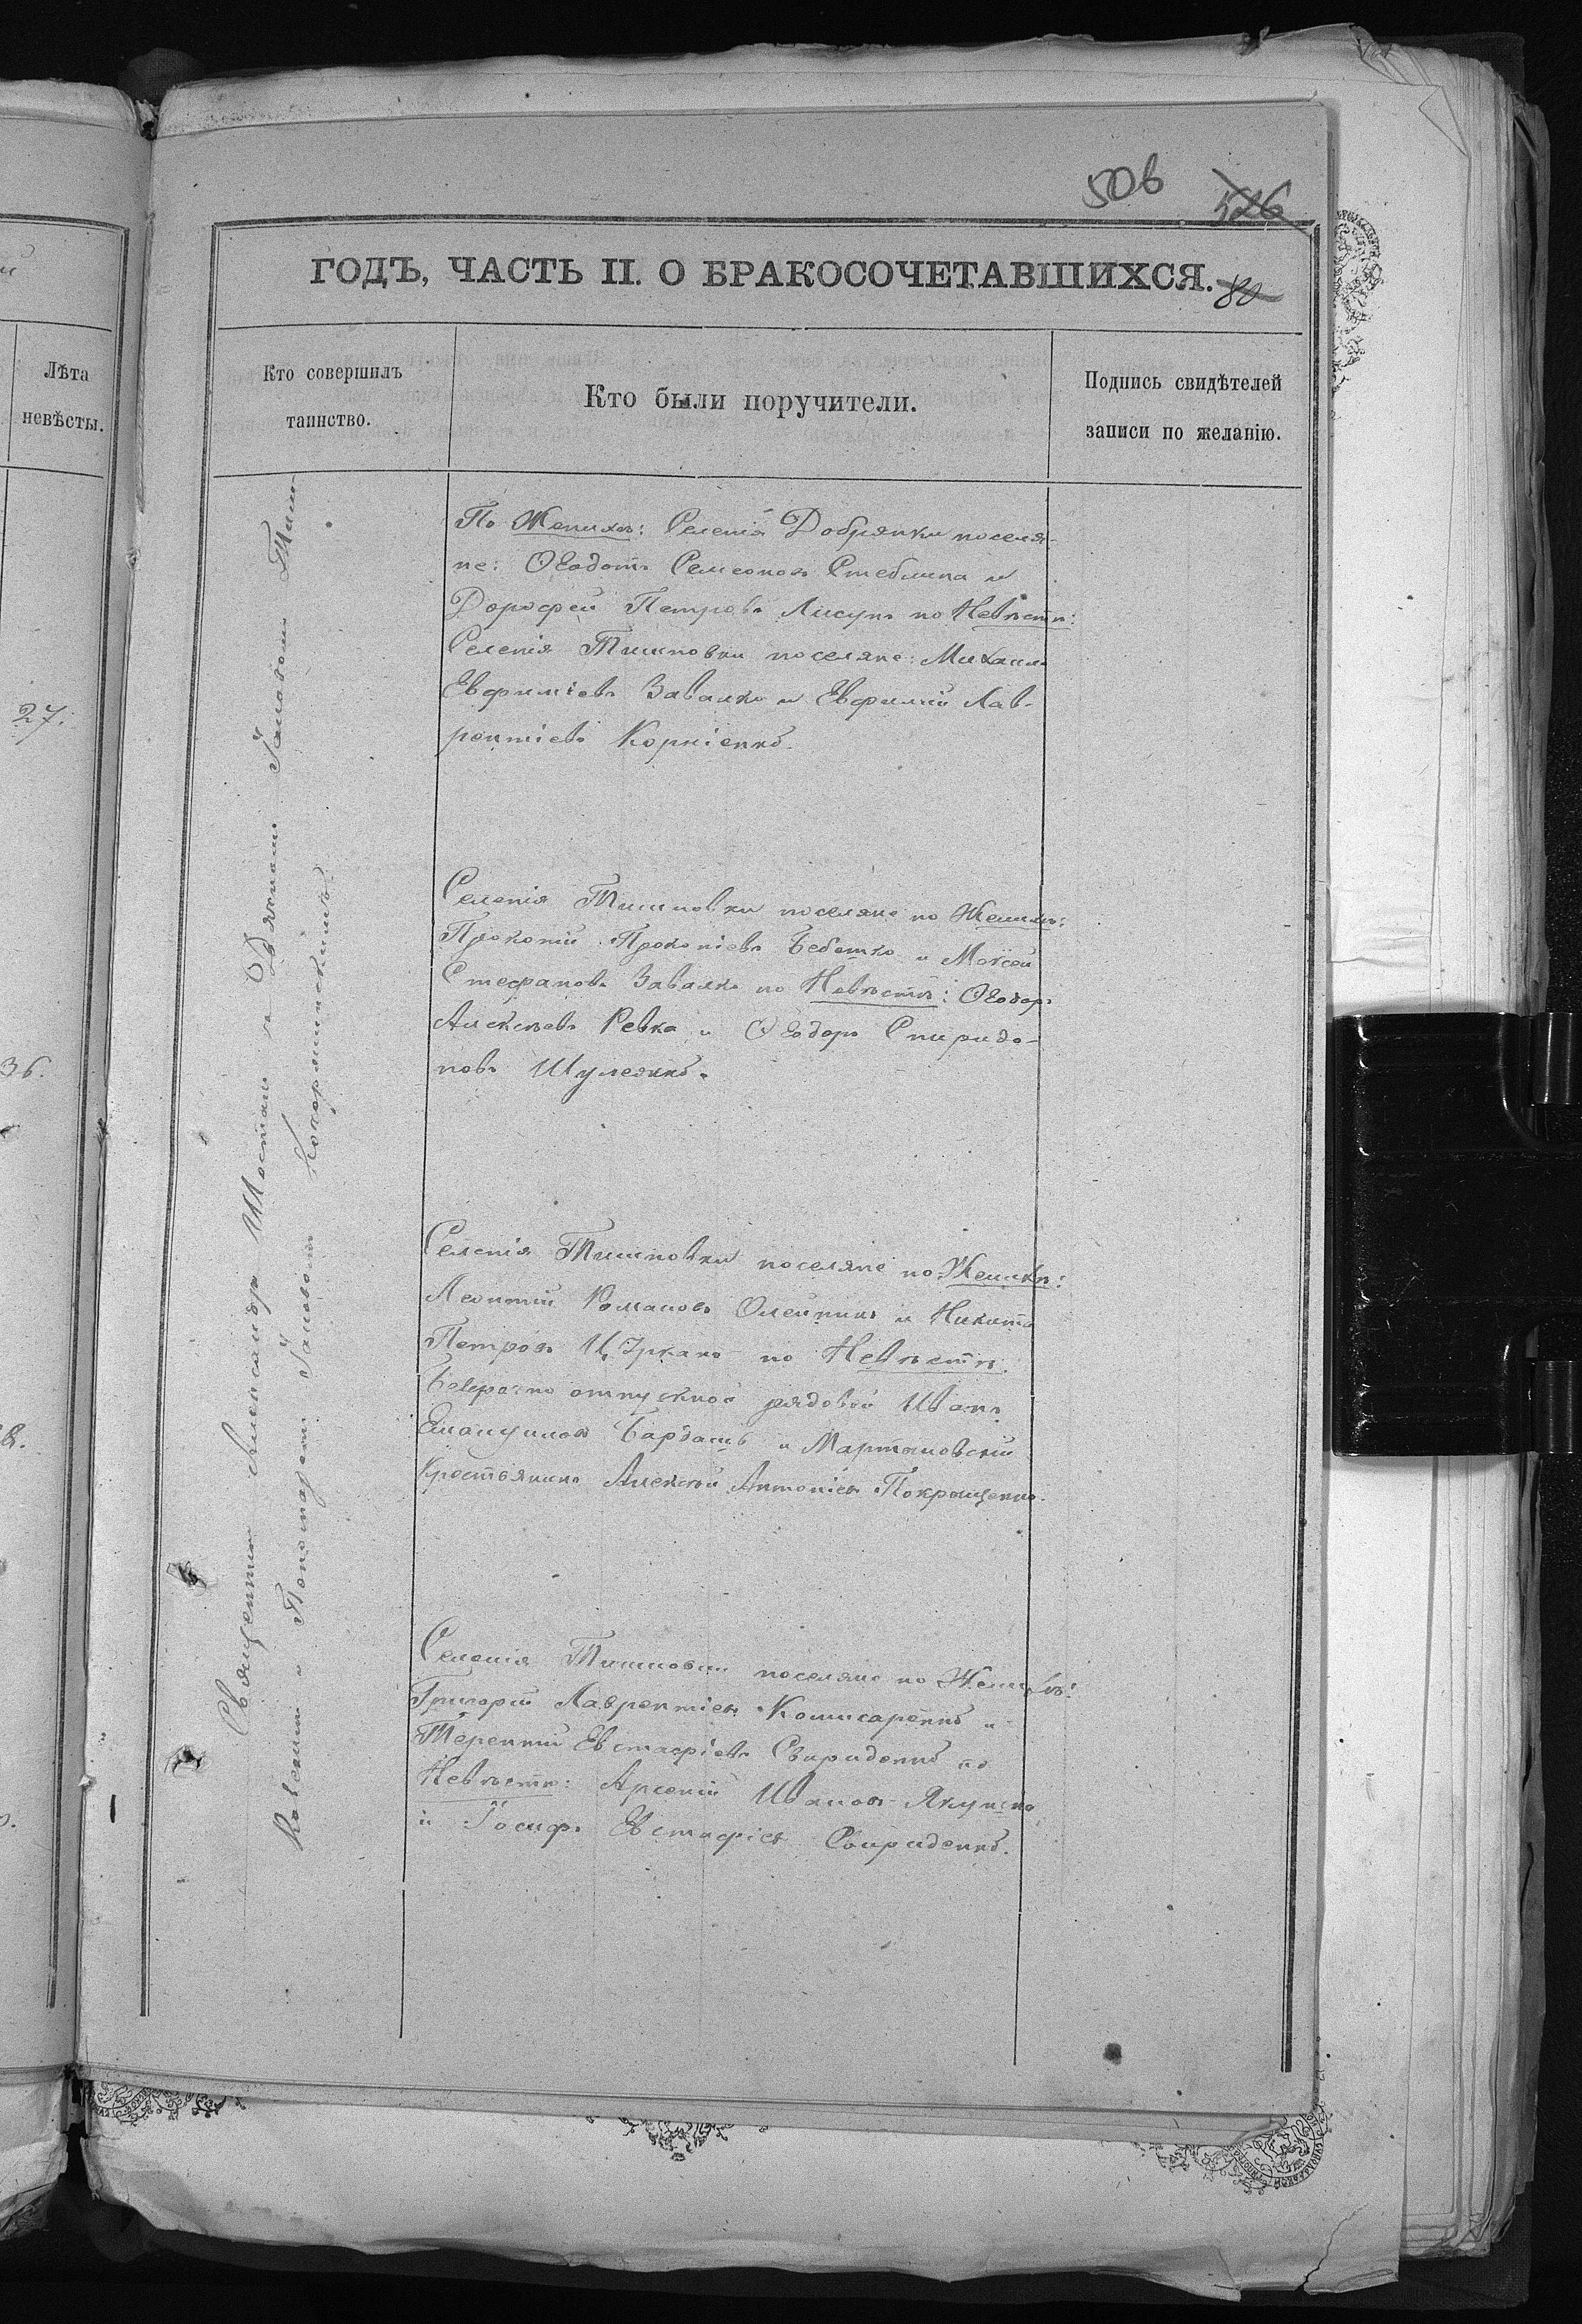 506
526
ГОДЪ, ЧАСТЬ II. О БРАКОСОЧЕТАВШИХСЯ.
80
Лѣта
невѣсты.
Кто совершилъ
таинство.
Кто были поручители.
Подпись свидѣтелей
записи по желанію.
27.
36.
Священникъ Александръ Шостакъ съ Дьякомъ
и Пономаремъ
По Женихѣ: Селенія Добрянки поселя-
не: Ѳеодотъ Семеоновъ Стеблина и
Дорофей Петровъ Лисунъ по Невѣстѣ:
Селенія Тишковки поселяне: Михаилъ
Евфиміевъ Завалко и Евфимій Лав-
рентіевъ Корніенко.
Селенія Тишковки поселяне по Женихѣ:
Прокопій Прокопіевъ Бебешко и Моѵсей
Стефановъ Завалко по Невѣстѣ: Ѳеодоръ
Алексѣевъ Ревка и Ѳеодоръ Спиридо-
новъ Шулежко.
Селенія Тишковки поселяне по Женихѣ:
Леонтій Романовъ Олейникъ и Никита
Петровъ Цуркано по Невѣстѣ.
отпускной рядовой Иванъ
Емануиловъ Бардашъ и Мартоновскій
Крестьянинъ Алексѣй Антоніевъ Покрищенко.
Селенія Тишковки поселяне по Женихѣ:
Григорій Лаврентіевъ Комисаренко и
Терентій Евстафіевъ Свириденко по
Невѣстѣ: Арсеній Ивановъ Якушко
и Іосифъ Евстафіевъ Свириденко.